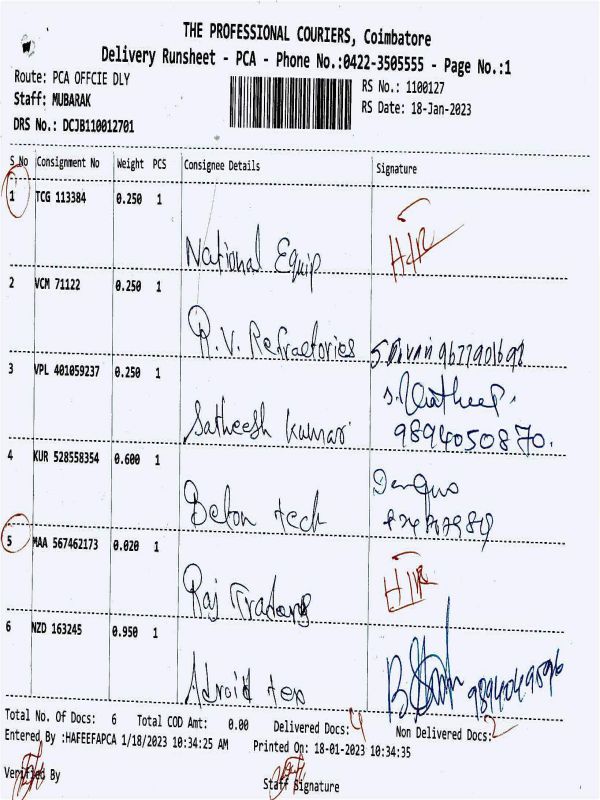 THE PROFESSIONAL COURIERS, Coimbatore
Delivery Runsheet - PCA - Phone No.:0422-3505555 - Page No.:1
Route: PCA OFFCIE DLY
RS No.: 1100127
Staff: MUBARAK
RS Date: 18-Jan-2023
DRS No.: DCJB110012701
S No Consignment No Weight PCS Consignee Details Signature
1 TCG 113384 0.250 1
National Equip
2 VCM 71122 0.250 1
R.V. Refractories 9677901698
3 VPL 401059237 0.250 1
Satheesh Kumar
9894050870.
4 KUR 528558354 0.600 1
Beton tech
5 MAA 567462173 0.020 1
Raj Traders
6 NZD 163245 0.950 1
Adroid tex
Total No. Of Docs: 6 Total COD Amt: 0.00 Delivered Docs: 4 Non Delivered Docs: 2
Entered By :HAFEEFAPCA 1/18/2023 10:34:25 AM Printed On: 18-01-2023 10:34:35
Verified By Staff Signature